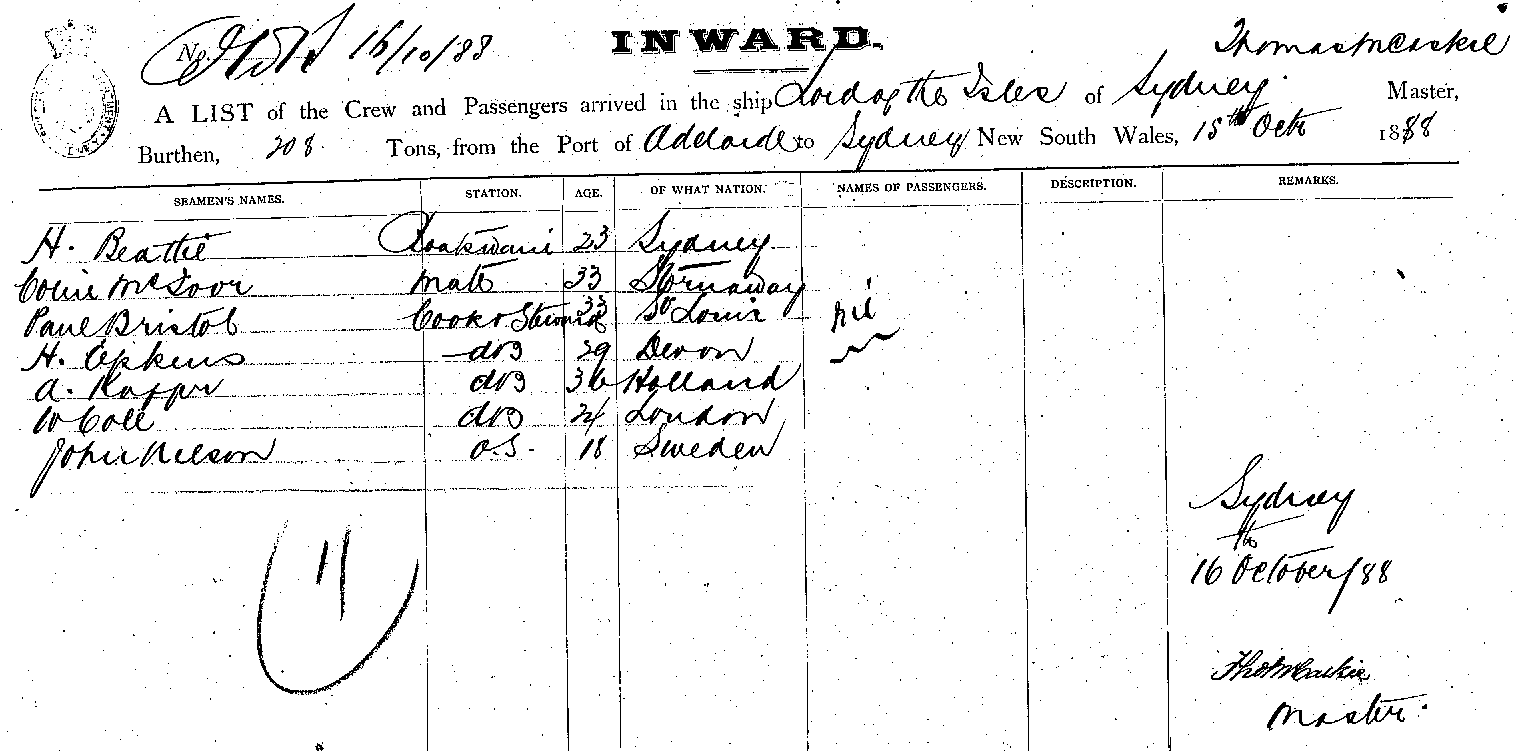 No. 16/10/88
INWARD.
Thomas McCaskie
A LIST of the Crew and Passengers arrived in the ship Lord of the Isles of Sydney Master,
Burthen, 208 Tons, from the Port of Adelaide to Sydney New South Wales, 15th Octr 1888
SEAMEN'S NAMES. STATION. AGE. OF WHAT NATION. NAMES OF PASSENGERS. DESCRIPTION. REMARKS.
H. Beattie 23 Sydney
Colin Mc mate 33 Stornaway
Paul Bristol Cook & Steward 33 St Louis nil
H. Epkins do 29 Devon
A. do 36 Holland
W Coll do 24 London
John Nelson O.S. 18 Sweden
Sydney
16th October/88
11
Thos McCaskie
Master.